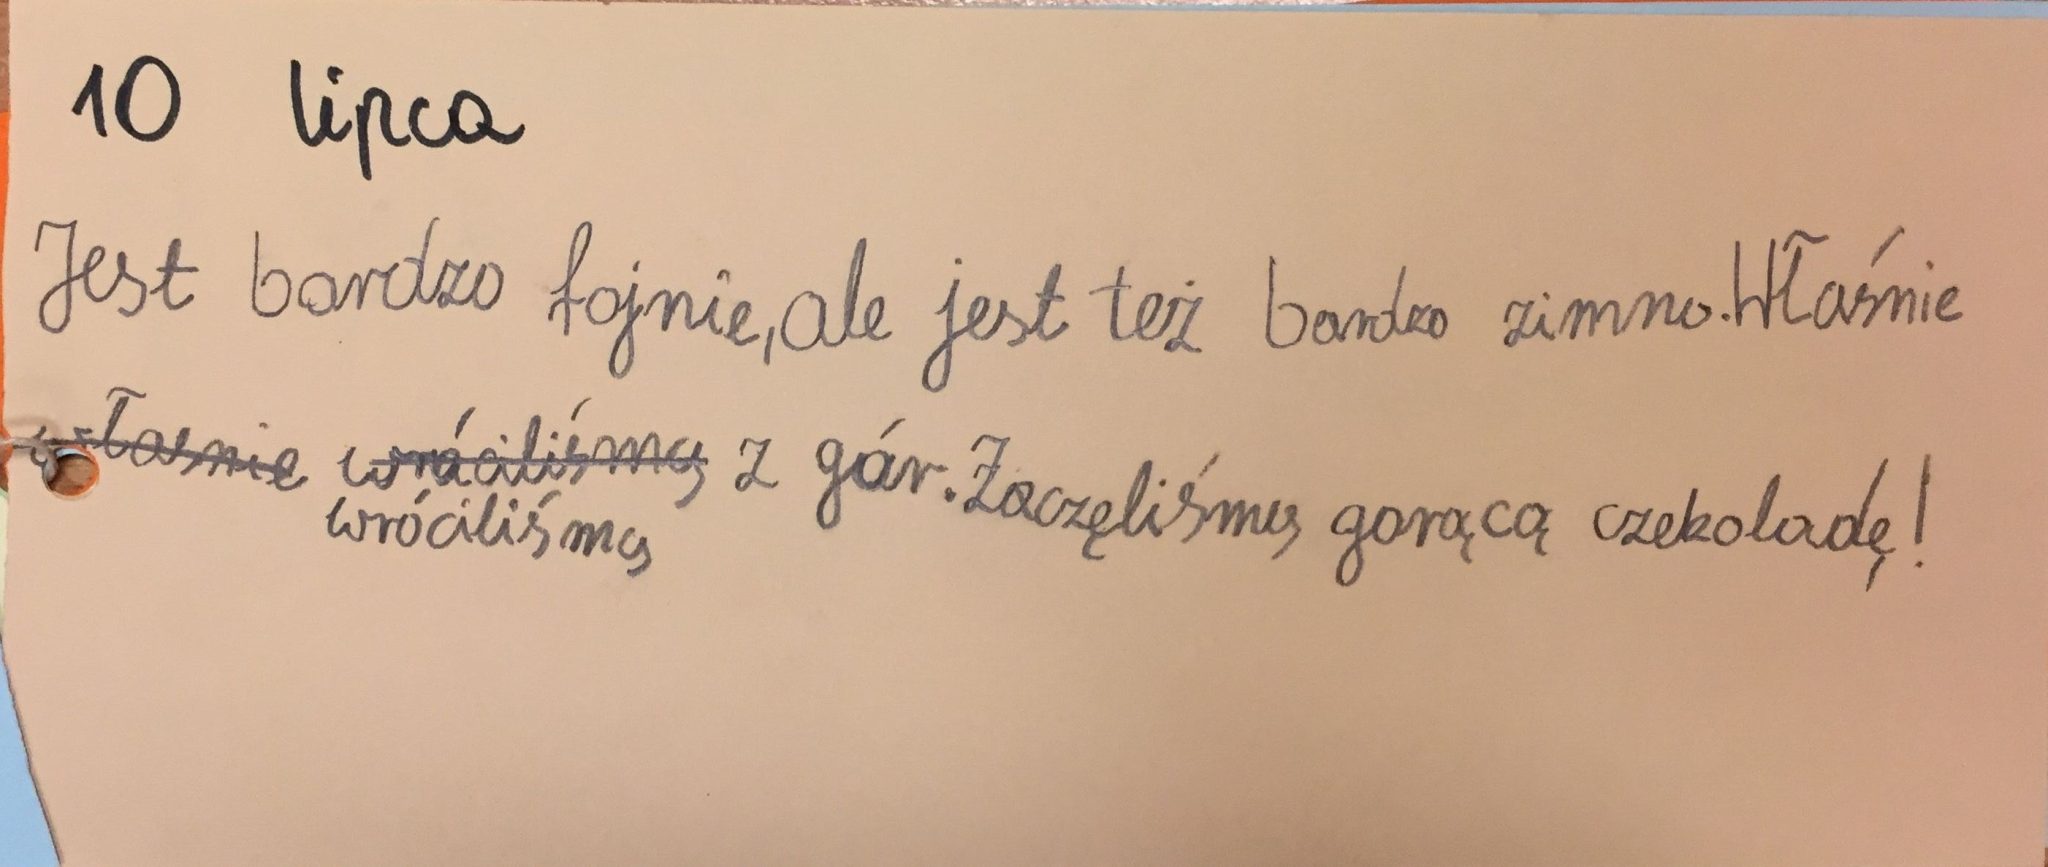 10 lipca
Jest bardzo fajnie, ale jest też bardzo zimno. Właśnie
własnie wróciliśmy z gór. Zaczęliśmy gorącą czekoladę!
wróciliśmy